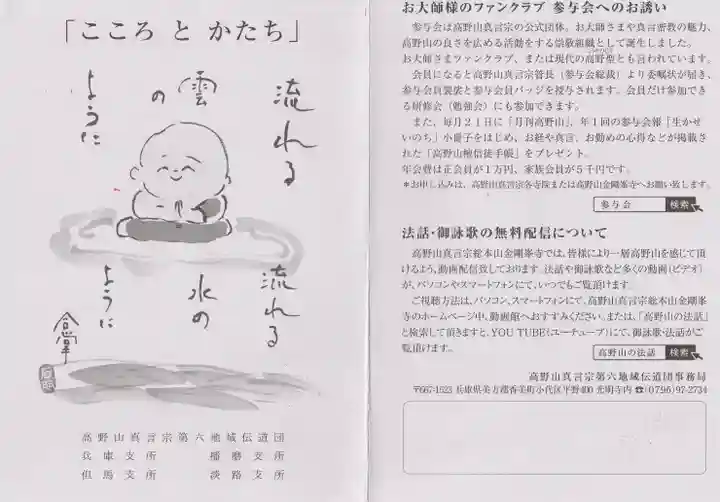 「こころ と かたち」
流れる
雲
の
ように
流れる
水の
ように
合掌
高野山真言宗第六地域伝道団
兵庫支所 播磨支所
但馬支所 淡路支所
お大師様のファンクラブ 参与会へのお誘い
参与会は高野山真言宗の公式団体。お大師さまや真言密教の魅力、
高野山の良さを広める活動をする崇敬組織として誕生しました。
お大師さまファンクラブ、または現代の高野聖とも言われています。
会員になると高野山真言宗管長(参与会総裁)より委嘱状が届き、
参与会員袈裟と参与会員バッジを授与されます。会員だけ参加でき
る研修会(勉強会)にも参加できます。
また、毎月21日に「月刊高野山」、年1回の参与会報「生かせ
いのち」小冊子をはじめ、お経や真言、お勤めの心得などが掲載さ
れた「高野山檀信徒手帳」をプレゼント。
年会費は正会員が1万円、家族会員が5千円です。
*お申し込みは、高野山真言宗各寺院または高野山金剛峯寺へお願い致します。
参与会 検索
法話・御詠歌の無料配信について
高野山真言宗総本山金剛峯寺では、皆様により一層高野山を感じて頂
けるよう、動画配信致しております。法話や御詠歌など多くの動画(ビデオ)
が、パソコンやスマートフォンにて、いつでもご覧頂けます。
ご視聴方法は、パソコン、スマートフォンにて、高野山真言宗総本山金剛峯
寺のホームページ中、動画館へおすすみください。または、「高野山の法話」
と検索して頂きますと、YOU TUBE(ユーチューブ)にて、御詠歌・法話がご
覧頂けます。
高野山の法話 検索
高野山真言宗第六地域伝道団事務局
〒667-1523 兵庫県美方郡香美町小代区平野400 光明寺内 ☎(0796)97-2734